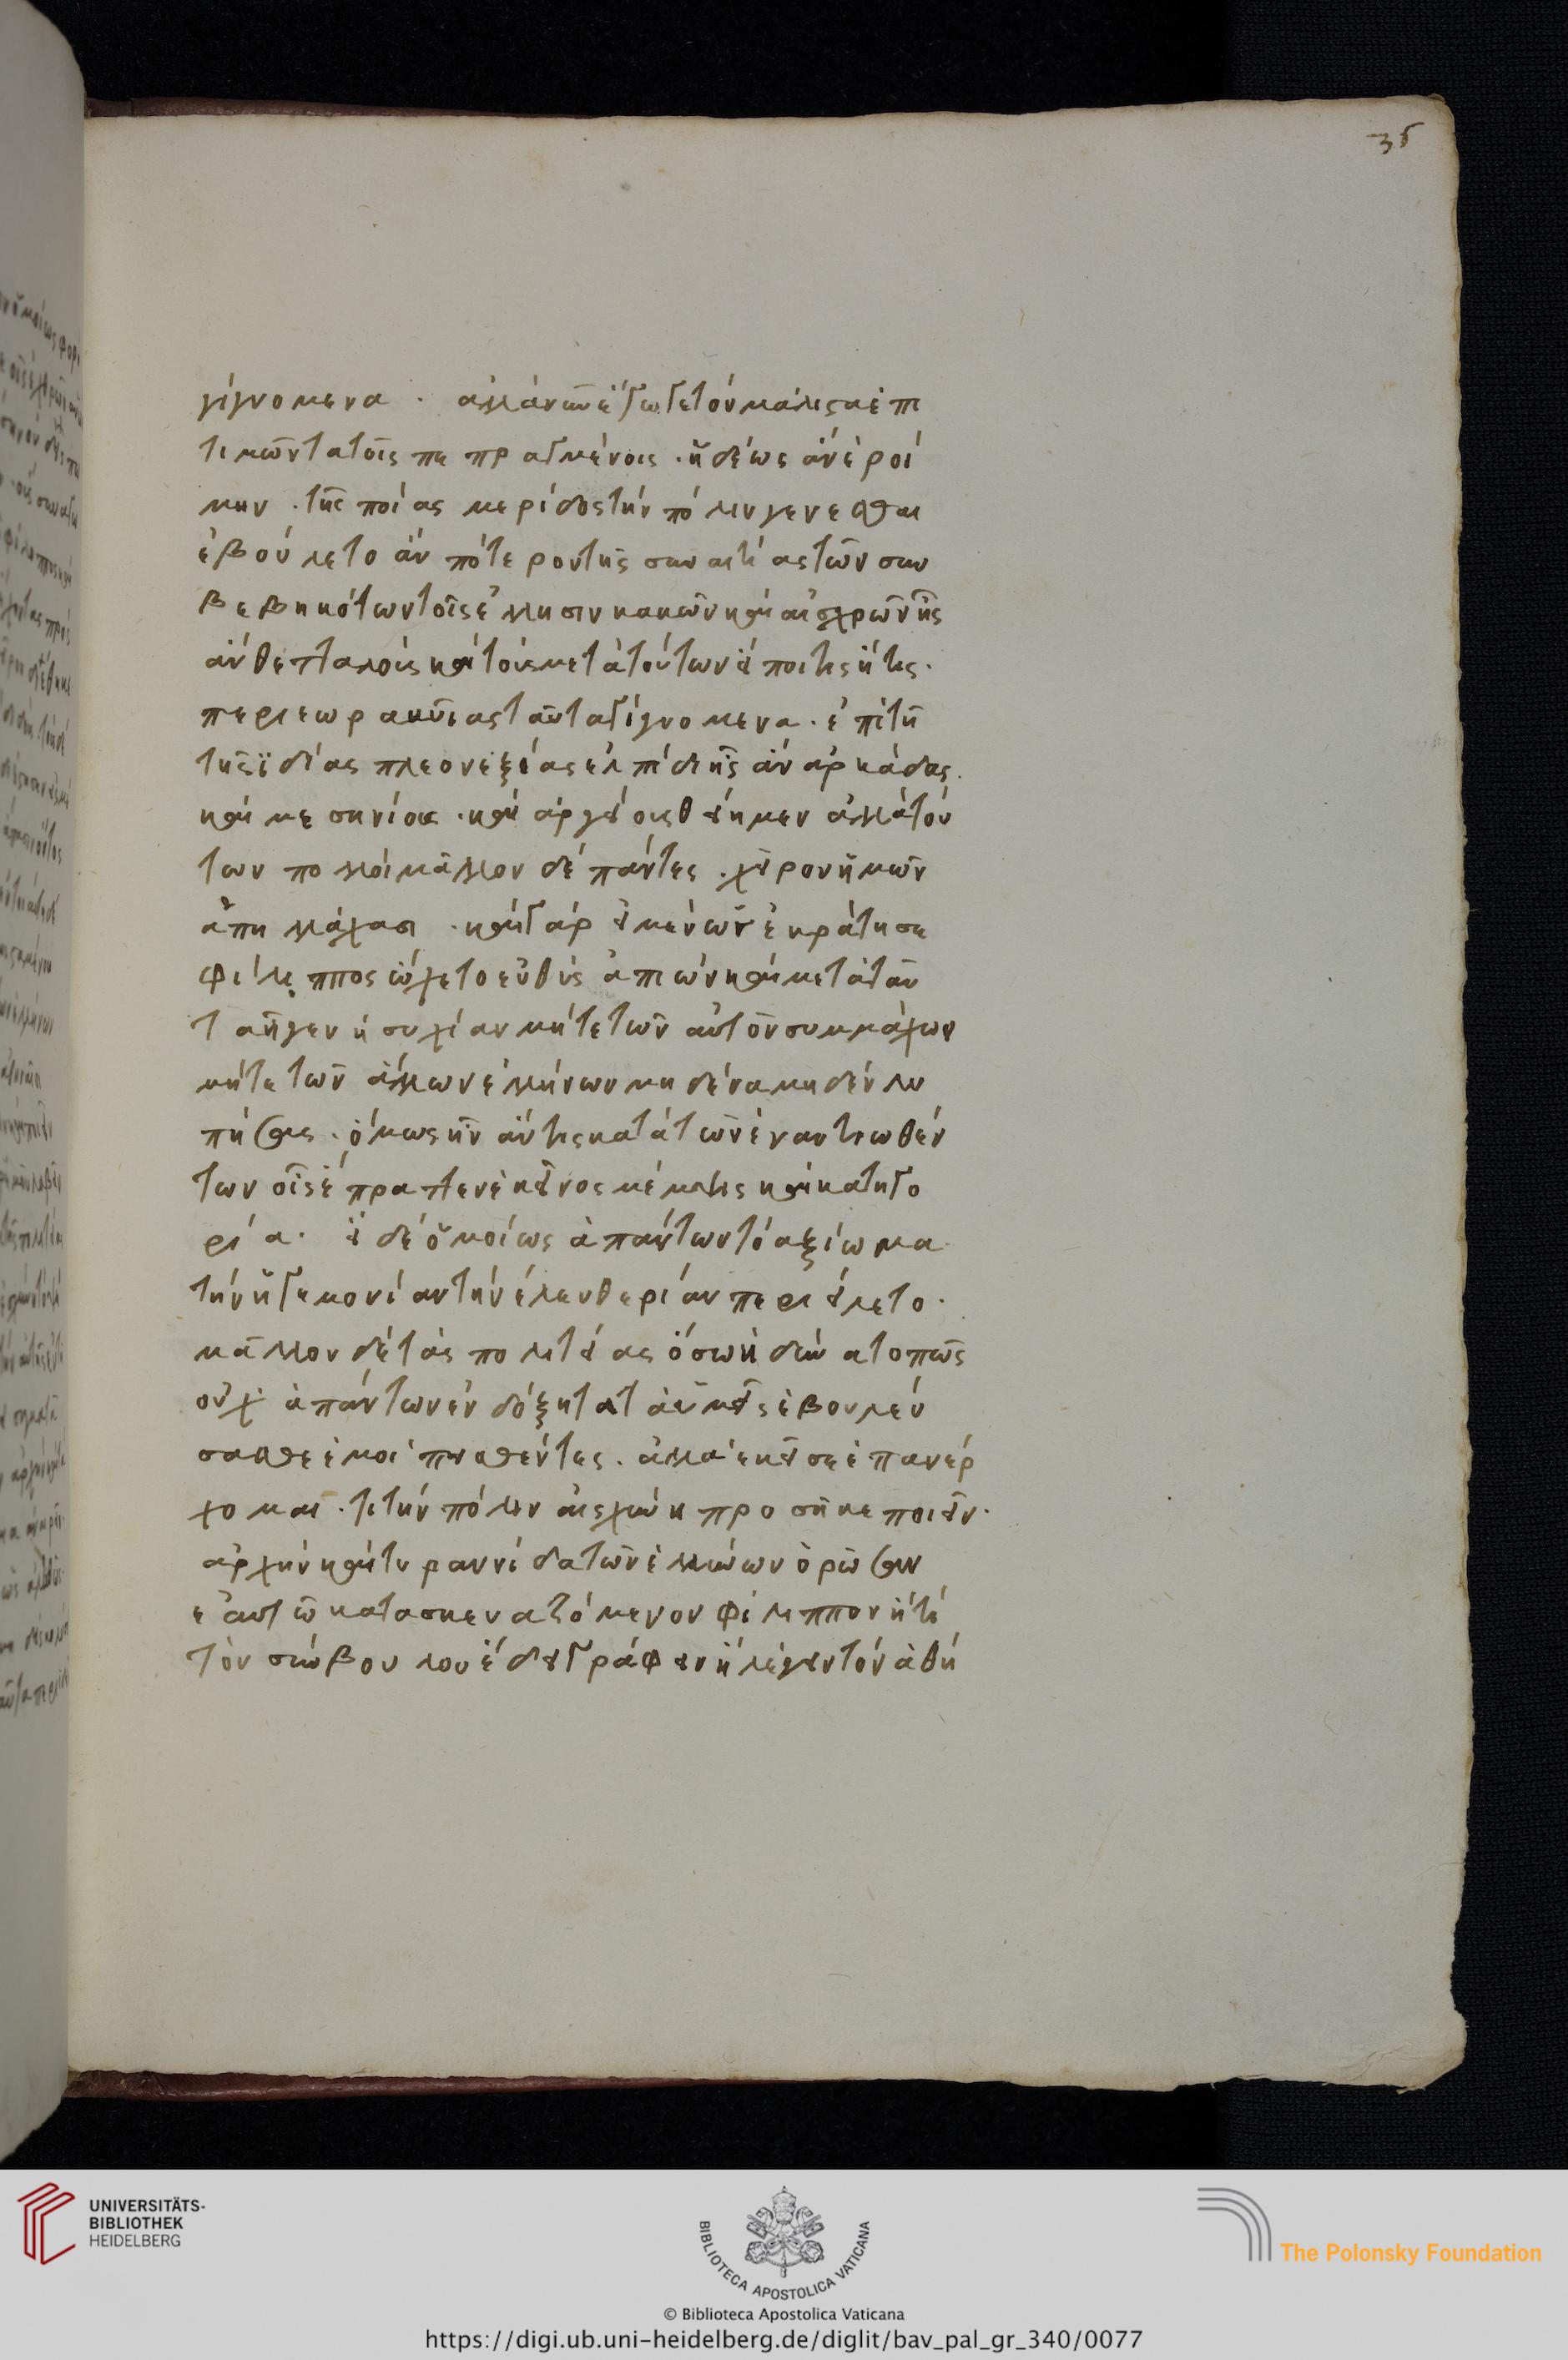 35
γίγνομενα · ἀλλὰ νῦν ἔγωγε τὸν μάλιστα ἐπι
τιμῶντα τοῖς πεπραγμένοις · ἡδέως ἂν ἐροί
μην · τῆς ποίας μερίδος τὴν πόλιν γενέσθαι
ἐβούλετο ἂν πότερον τῆς συναιτίας τῶν συμ
βεβηκότων τοῖς ἕλλησιν κακῶν καὶ αἰσχρῶν ἧς
ἂν θετταλοὺς καὶ τοὺς μετὰ τούτων εἴποι τις ἢ τῆς ·
περιεωρακυίας ταῦτα γίγνομενα · ἐπὶ τῆ
τῆς ἰδίας πλεονεξίας ἐλπίδι ἧς ἂν ἀρκάδας ·
καὶ μεσηνίους · καὶ ἀργείους θείημεν ἀλλὰ τού
των πολλοὶ μᾶλλον δὲ πάντες · χεῖρον ἡμῶν
ἀπηλλάχασι · καὶ γὰρ εἰ μὲν ὡς ἐκράτησε
φίλιππος ὤχετο εὐθὺς ἀπιὼν καὶ μετὰ ταῦ
τα ἦγεν ἡσυχίαν μήτε τῶν αὐτοῦ συμμάχων
μήτε τῶν ἄλλων ἑλλήνων μηδένα μηδὲν λυ
πήσας · ὅμως ἦν ἄν τις κατὰ τῶν ἐναντιωθέν
των οἷς ἔπραττεν ἐκεῖνος μέμψις καὶ κατηγο
ρία · εἰ δὲ ὁμοίως ἁπάντων τὸ ἀξίωμα
τὴν ἡγεμονίαν τὴν ἐλευθερίαν περιείλετο ·
μᾶλλον δὲ τὰς πολιτείας ὅσων ἠδύνατο πῶς
οὐχ ἁπάντων ἐνδοξότατα ὑμεῖς ἐβουλεύ
σασθε ἐμοὶ πεισθέντες · ἀλλὰ ἐκεῖσε ἐπανέρ
χομαι · τι τὴν πόλιν αἰσχίνη προσῆκε ποιεῖν ·
ἀρχὴν καὶ τυραννίδα τῶν ἑλλήνων ὁρῶσαν
ἑαυτῶ κατασκευαζόμενον φίλιππον ἢ τί
τὸν σύμβουλον ἔδει γράφειν ἢ λέγειν τὸν ἀθή
UNIVERSITÄTS-
BIBLIOTHEK
HEIDELBERG
BIBLIOTECA APOSTOLICA VATICANA
The Polonsky Foundation
© Biblioteca Apostolica Vaticana
https://digi.ub.uni-heidelberg.de/diglit/bav_pal_gr_340/0077